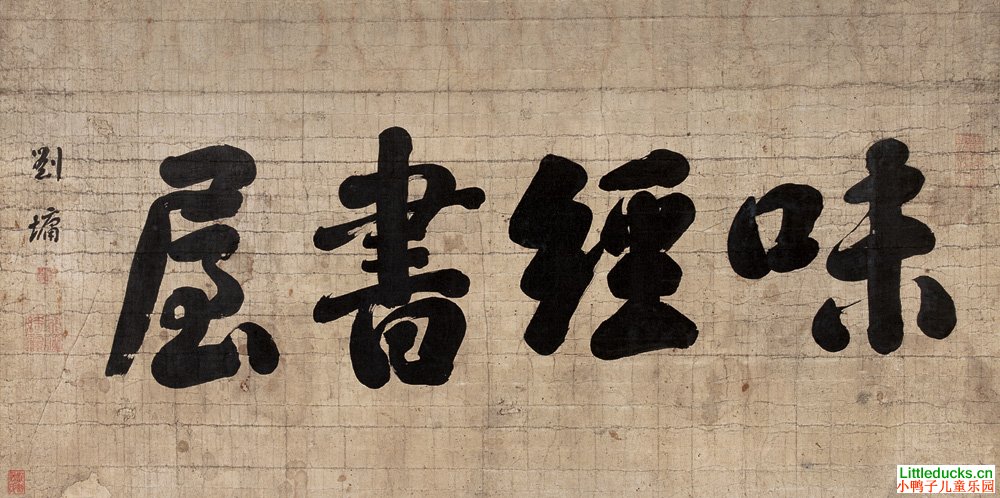 味經書屋
劉墉
Littleducks.cn
小鸭子儿童乐园